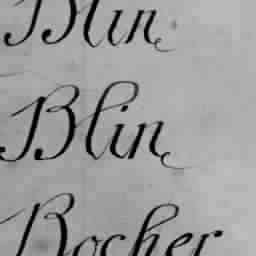 Blin
Blin
Bocher